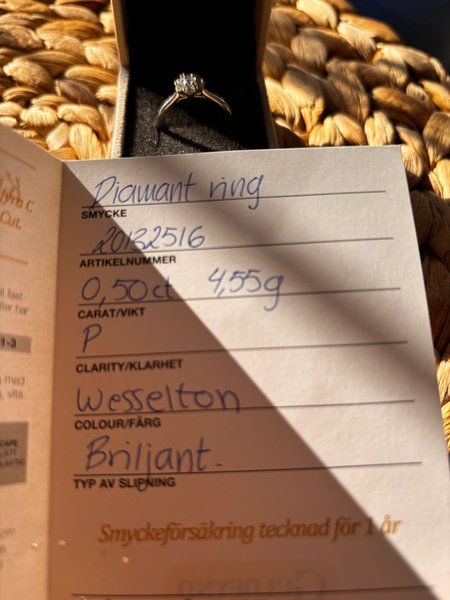 Diamant ring
SMYCKE
20132516
ARTIKELNUMMER
0,50ct 4,55g
CARAT/VIKT
P
CLARITY/KLARHET
Wesselton
COLOUR/FÄRG
Briljant.
TYP AV SLIPNING
Smyckeförsäkring tecknad för 1 år
GULDFYND
Cut.
1-3